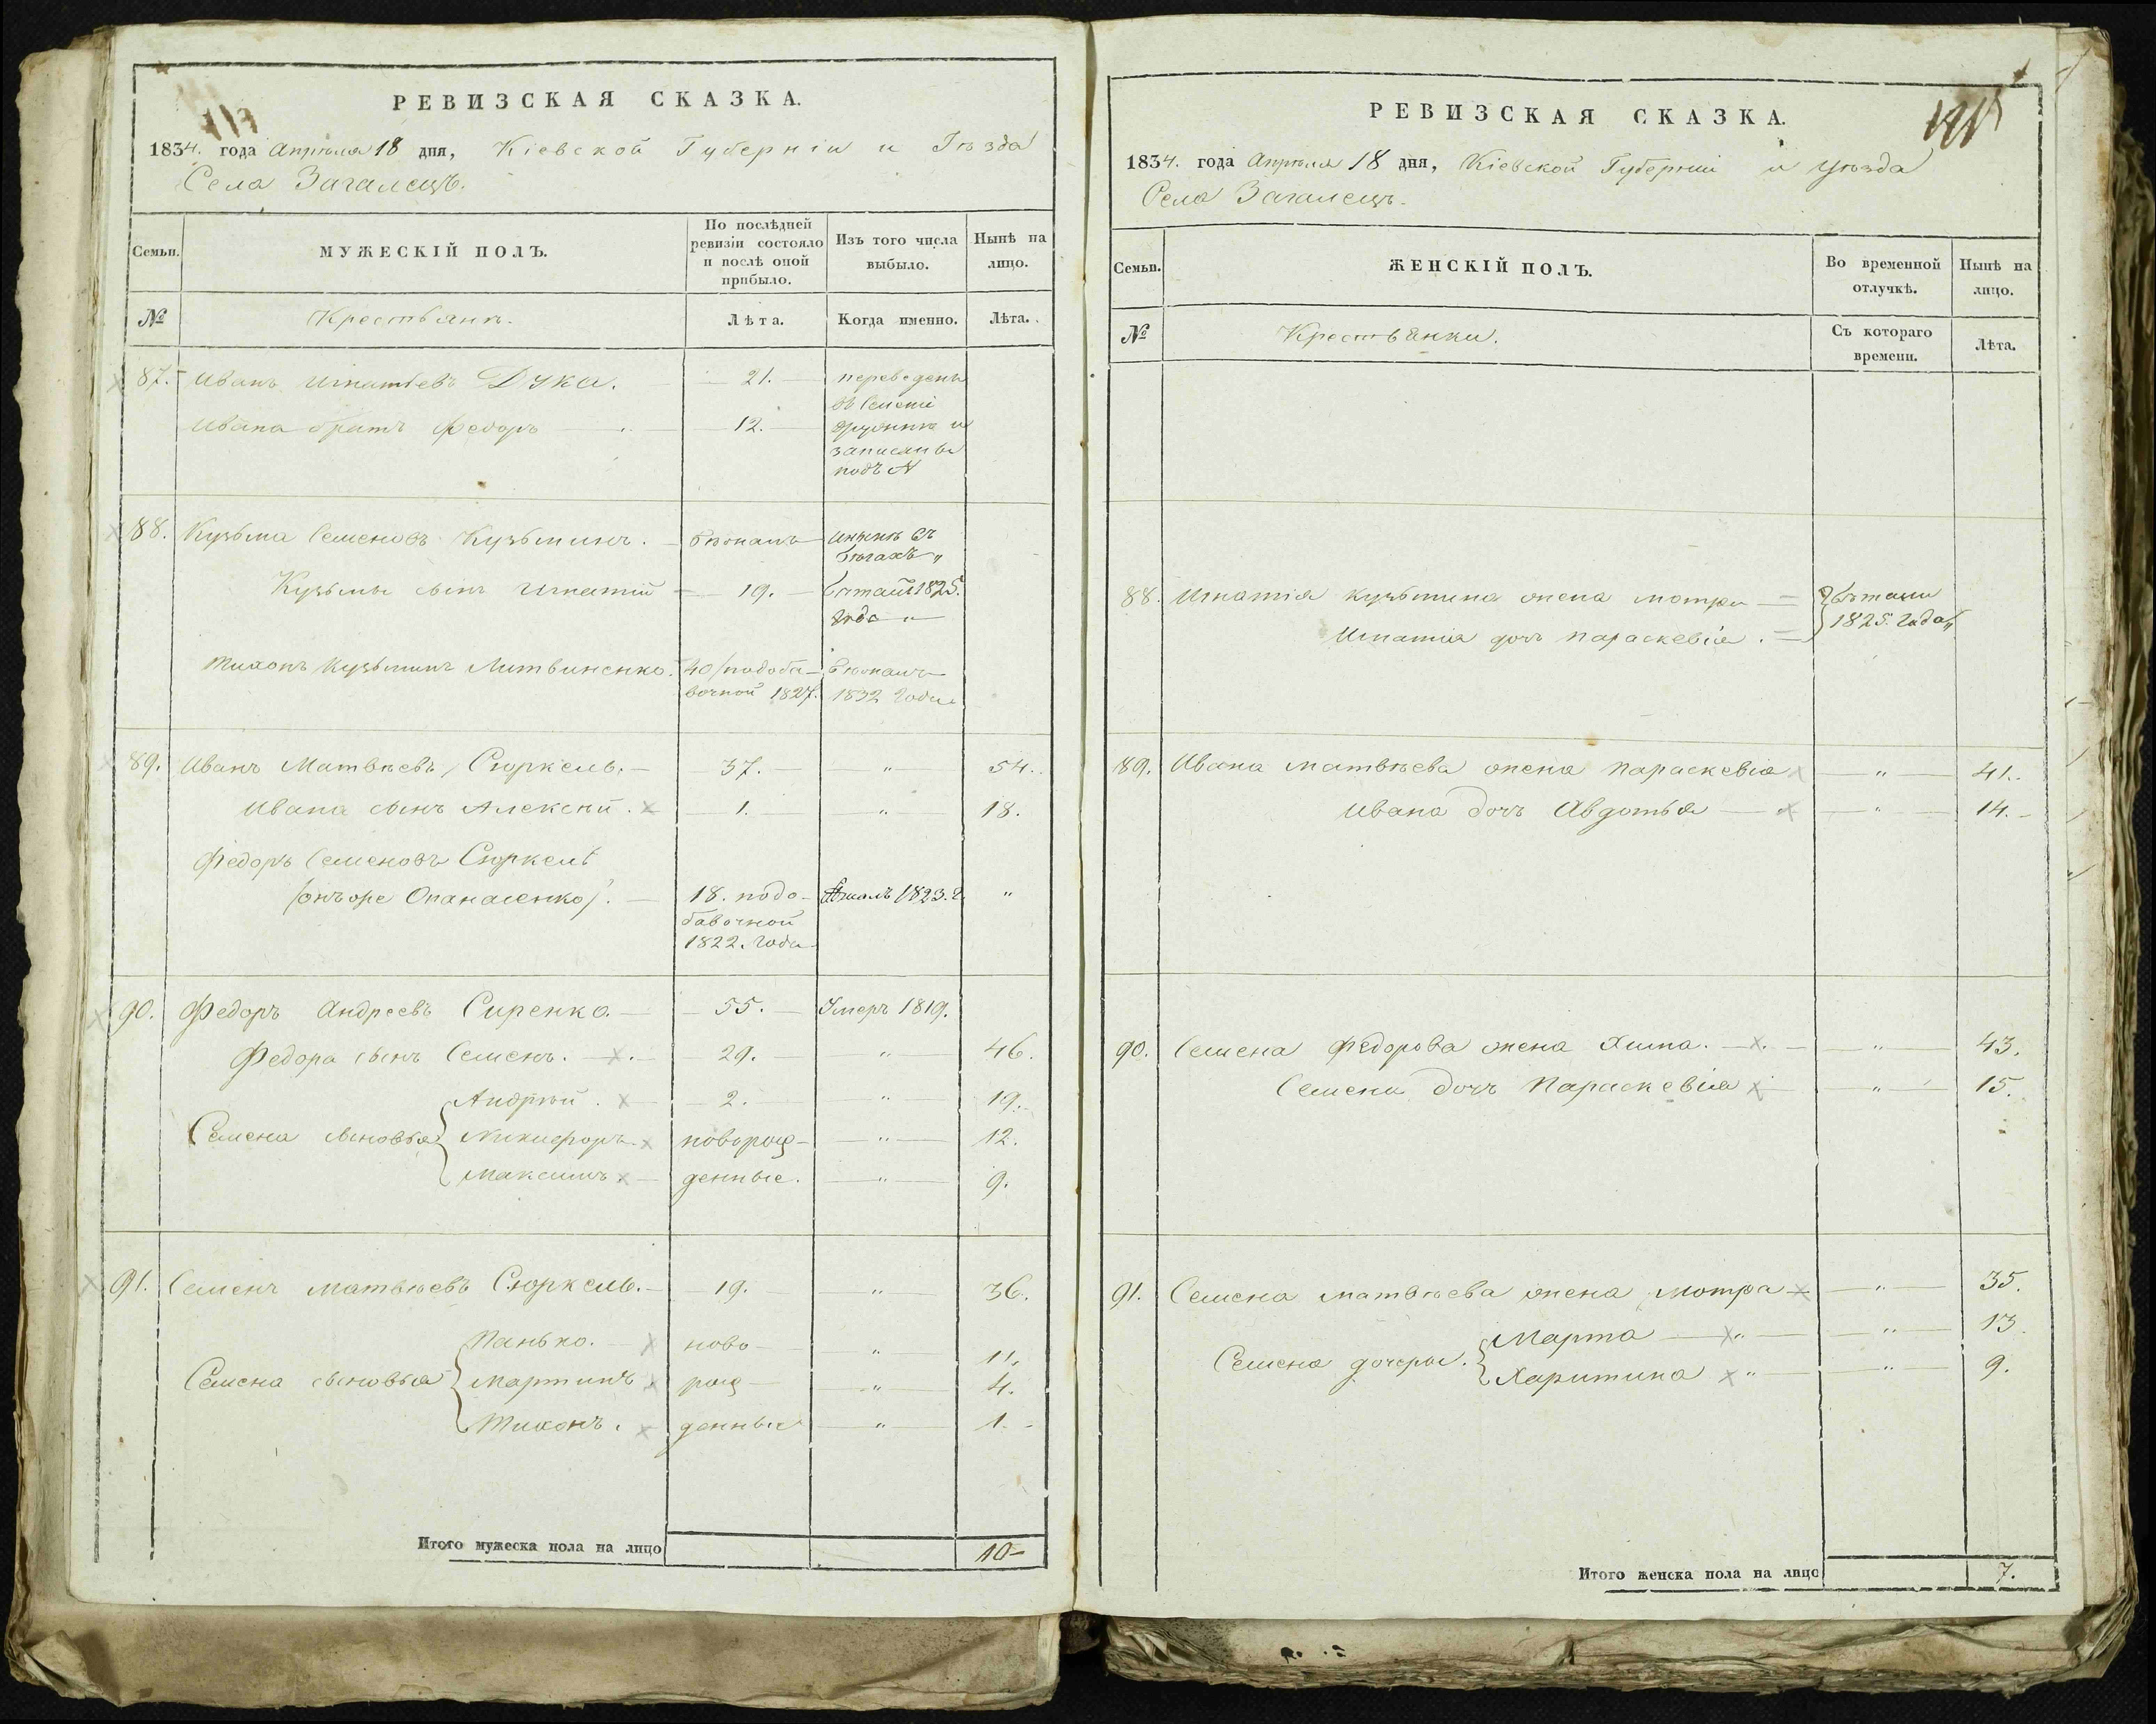 РЕВИЗСКАЯ СКАЗКА.
1834. года Апрѣля 18 дня, Кіевской Губерніи и Уѣзда
Села Загалецъ.
Семьи.
МУЖЕСКІЙ ПОЛЪ.
По послѣдней ревизіи состояло и послѣ оной прибыло.
Изъ того числа выбыло.
Нынѣ на лицо.
№
Крестьянъ.
Лѣта.
Когда именно.
Лѣта.
87. Иванъ Игнатьевъ Дука. 21. переведены
въ Семеніи
Ивана братъ Федоръ 12. другимъ и
записаны
подъ №
88. Кузьма Семеновъ Кузьминъ. Бѣжалъ и нынѣ въ
бѣгахъ "
Кузьмы сынъ Игнатій 19. 1825.
года "
Тихонъ Кузьминъ Литвиненко. 40 /подоба- Бѣжалъ
вочной 1827. 1832 Года
89. Иванъ Матвѣевъ Сюркель. 37. " 54.
Ивана сынъ Алексѣй. 1. " 18.
Федоръ Семеновъ Сюркель
/онъ же Опанасенко/. 18. подо- 1823. "
бавочной
1822. Года
90. Федоръ Андреевъ Сиренко. 55. Умеръ 1819.
Федора сынъ Семенъ. 29. " 46.
Андрѣй. 2. " 19.
Семена сыновья Никифоръ новорож- " 12.
Максимъ денные. " 9.
91. Семенъ Матвѣевъ Сюркель. 19. " 36.
Панько. ново " 11.
Семена сыновья Мартинъ рож " 4.
Тихонъ. денные " 1.
Итого мужеска пола на лицо 10
РЕВИЗСКАЯ СКАЗКА.
1834. года Апрѣля 18 дня, Кіевской Губерніи и Уѣзда
Села Загалецъ.
Семьи.
ЖЕНСКІЙ ПОЛЪ.
Во временной отлучкѣ.
Нынѣ на лицо.
№
Крестьянки.
Съ котораго времени.
Лѣта.
88. Игнатія Кузьмина жена Мотря
1825. Года "
Игнатія дочь Параскевія.
89. Ивана Матвѣева жена Параскевія " 41.
Ивана дочь Авдотья " 14.
90. Семена Федорова жена Хима. " 43.
Семена дочь Параскевія " 15.
91. Семена Матвѣева жена Мотра " 35.
Марта " " 13.
Семена дочеры.
Харитина " " 9.
Итого женска пола на лицо 7.